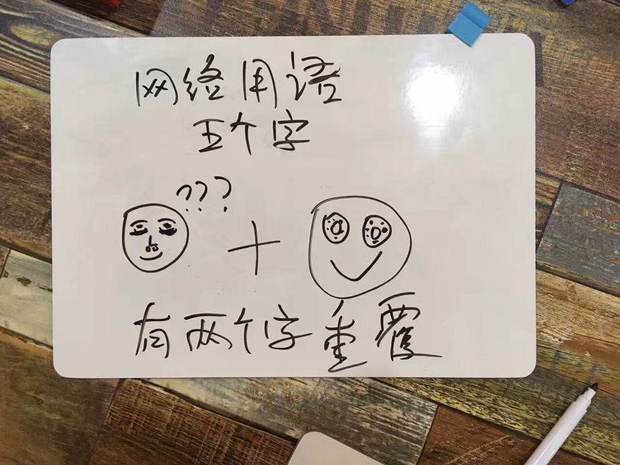 网络用语
五个字
???
+
有两个字重覆